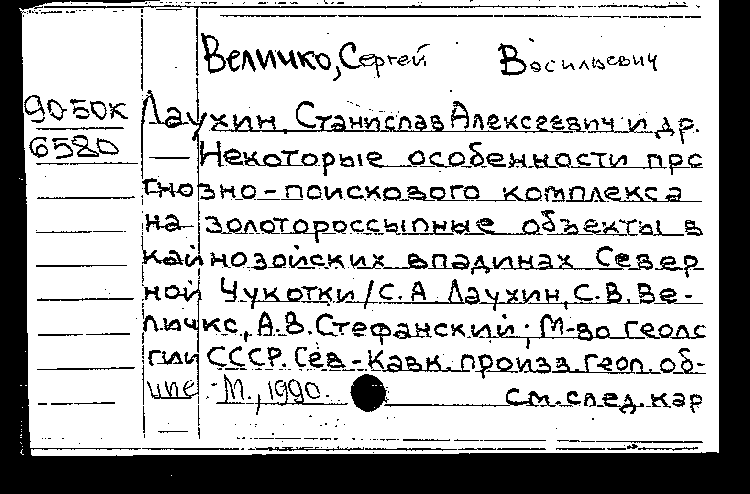 Величко, Сергей Васильевич
90-50к
6580
Лаухин, Станислав Алексеевич и др.
— Некоторые особенности про
гнозно-поискового комплекса
на золотороссыпные объекты в
кайнозойских впадинах Север
ной Чукотки / С. А. Лаухин, С. В. Ве-
личко, А. В. Стефанский; М-во геоло
гии СССР. Сев-Кавк. произв. геол. об-
ние. - М., 1990. См. след. кар